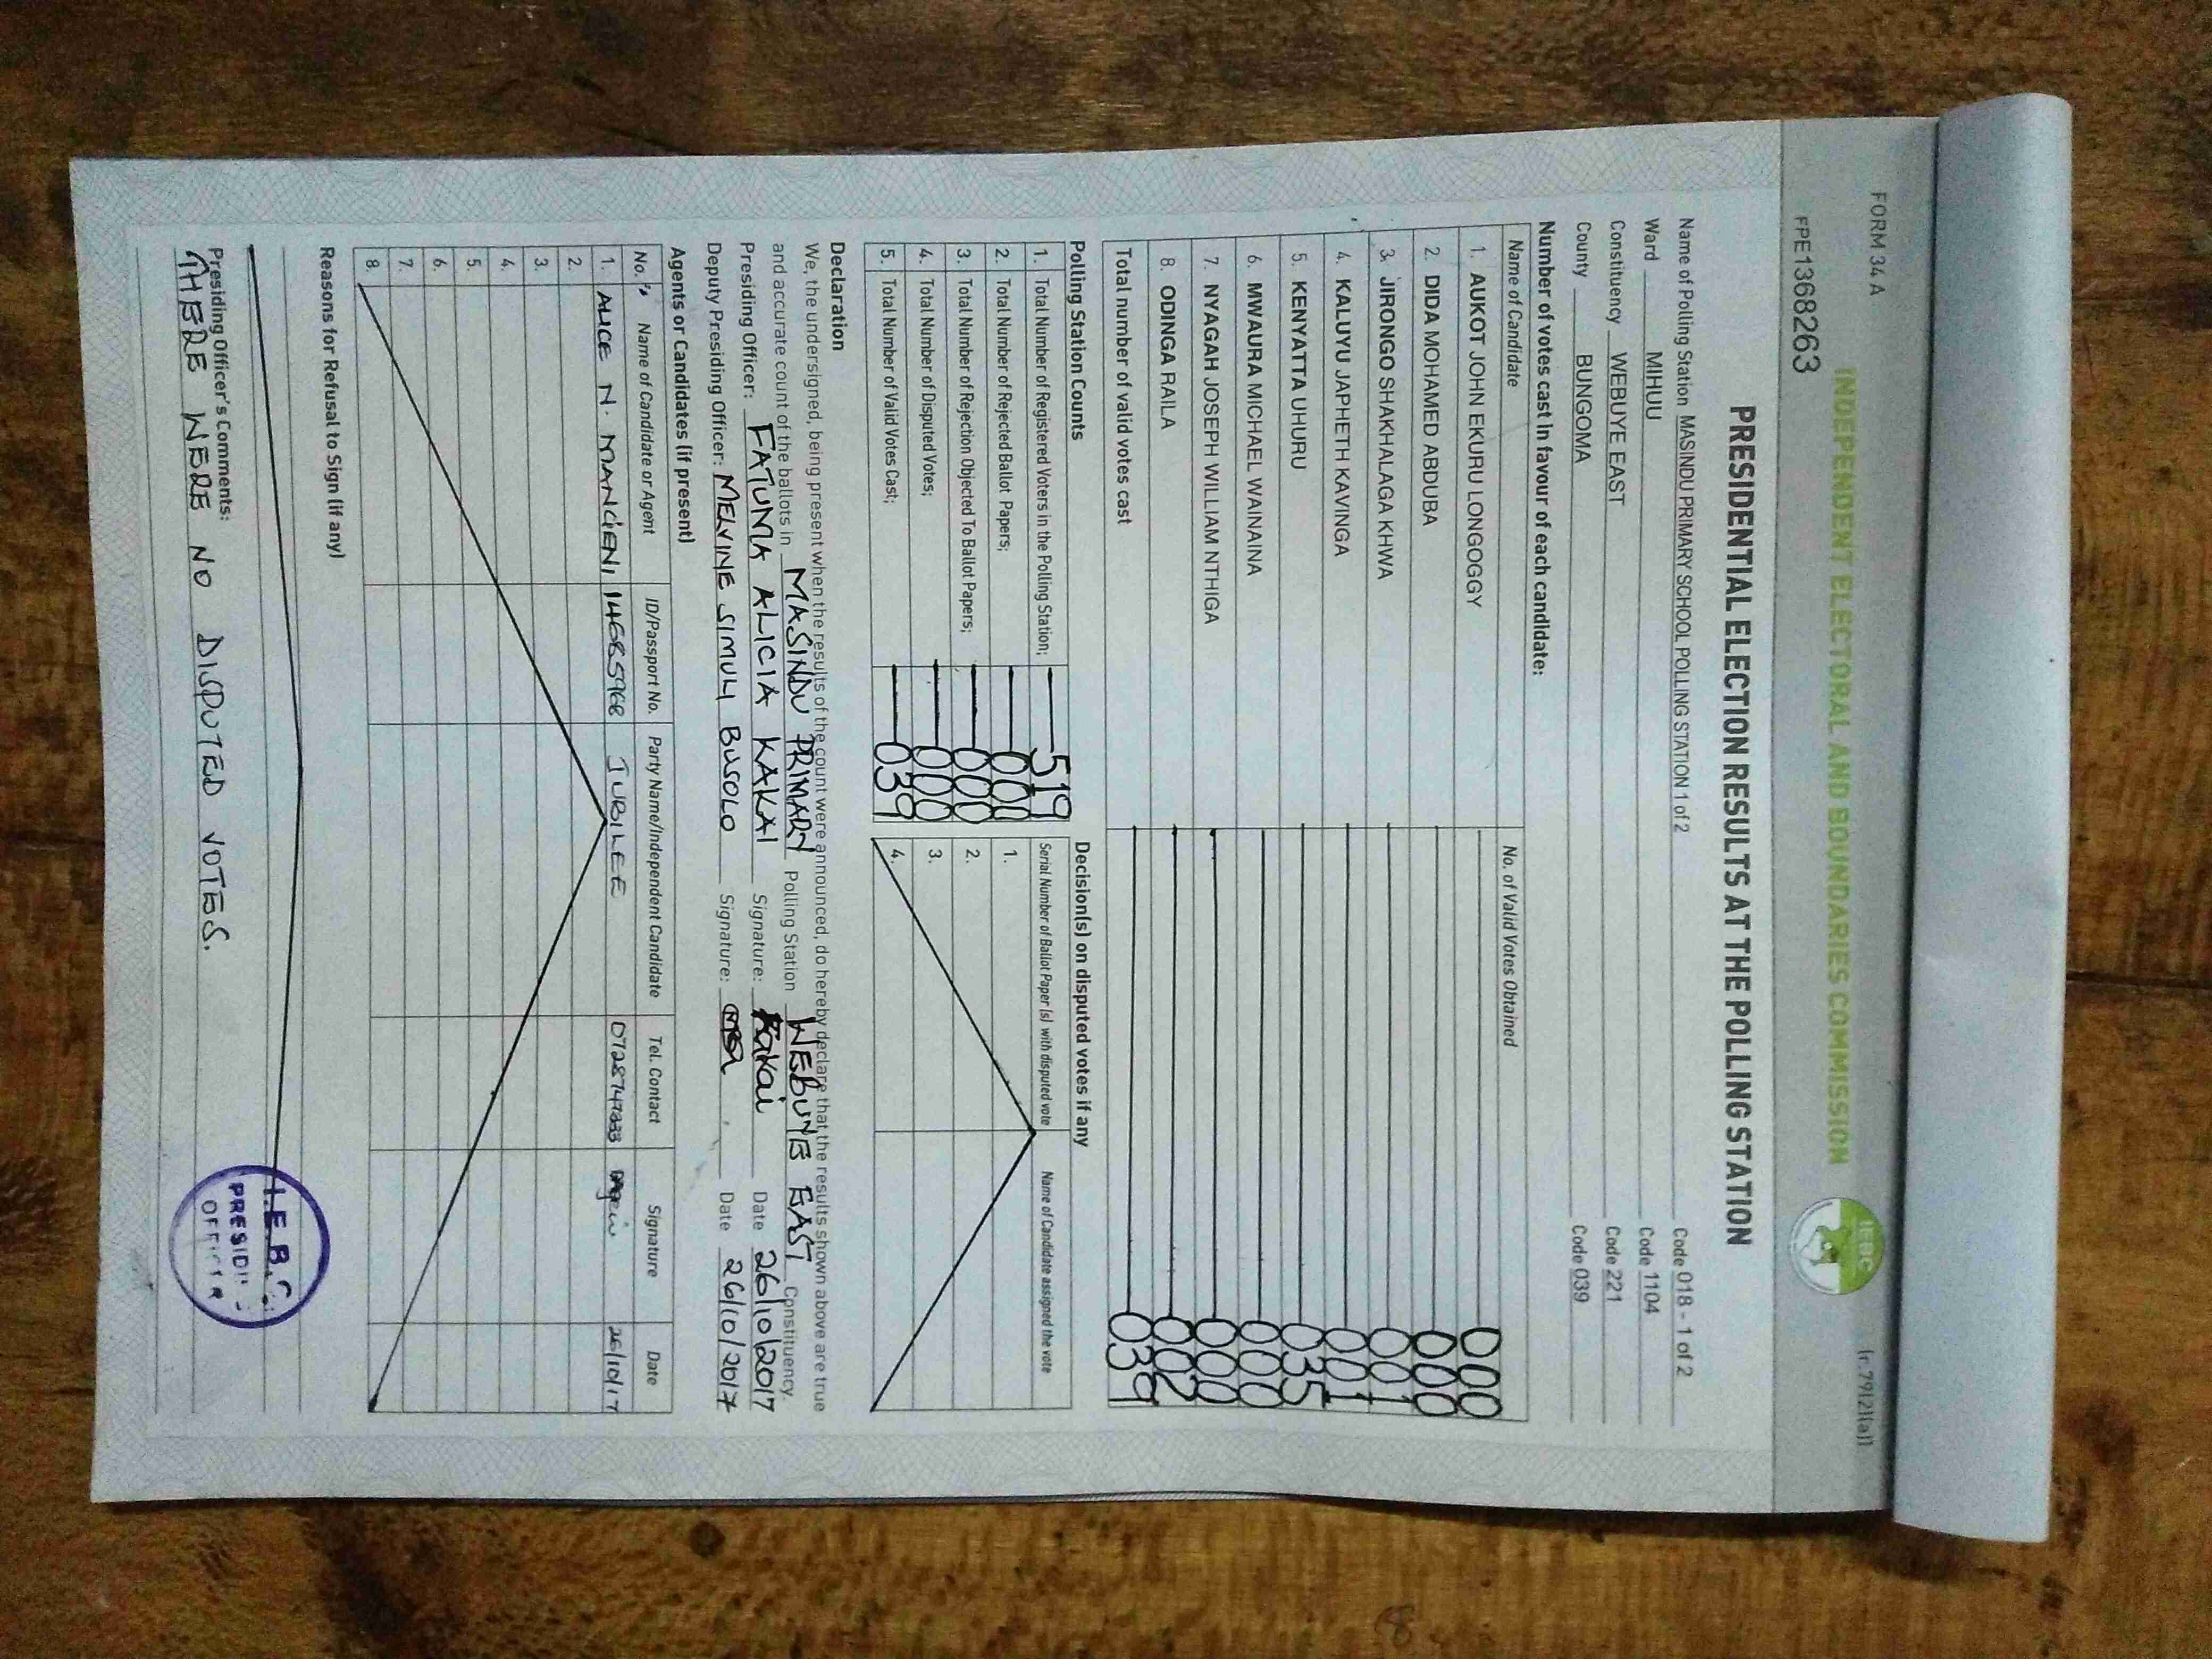 FORM 34 A
(r. 79(2)(a))
INDEPENDENT ELECTORAL AND BOUNDARIES COMMISSION
IEBC
FPE1368263
PRESIDENTIAL ELECTION RESULTS AT THE POLLING STATION
Name of Polling Station MASINDU PRIMARY SCHOOL POLLING STATION 1 of 2 Code 018 - 1 of 2
Ward MIHUU Code 1104
Constituency WEBUYE EAST Code 221
County BUNGOMA Code 039
Number of votes cast in favour of each candidate:
Name of Candidate No. of Valid Votes Obtained
1. AUKOT JOHN EKURU LONGOGGY 000
2. DIDA MOHAMED ABDUBA 000
3. JIRONGO SHAKHALAGA KHWA 001
4. KALUYU JAPHETH KAVINGA 001
5. KENYATTA UHURU 035
6. MWAURA MICHAEL WAINAINA 000
7. NYAGAH JOSEPH WILLIAM NTHIGA 000
8. ODINGA RAILA 002
Total number of valid votes cast 039
Polling Station Counts
1. Total Number of Registered Voters in the Polling Station; 519
2. Total Number of Rejected Ballot Papers; 000
3. Total Number of Rejection Objected To Ballot Papers; 000
4. Total Number of Disputed Votes; 000
5. Total Number of Valid Votes Cast; 039
Decision(s) on disputed votes if any
Serial Number of Ballot Paper (s) with disputed vote Name of Candidate assigned the vote
1.
2.
3.
4.
Declaration
We, the undersigned, being present when the results of the count were announced, do hereby declare that the results shown above are true
and accurate count of the ballots in MASINDU PRIMARY Polling Station WEBUYE EAST Constituency.
Presiding Officer: FATUMA ALICIA KAKAI Signature: Kakai Date 26/10/2017
Deputy Presiding Officer: MELVINE SIMULI BUSOLO Signature: Date 26/10/2017
Agents or Candidates (if present)
No. Name of Candidate or Agent ID/Passport No. Party Name/Independent Candidate Tel. Contact Signature Date
1. ALICE N. 14685968 JUBILEE 26/10/17
2.
3.
4.
5.
6.
7.
8.
Reasons for Refusal to Sign (if any)
Presiding Officer's Comments:
THERE WERE NO DISPUTED VOTES.
I.E.B.C.
PRESIDI
OFFICER